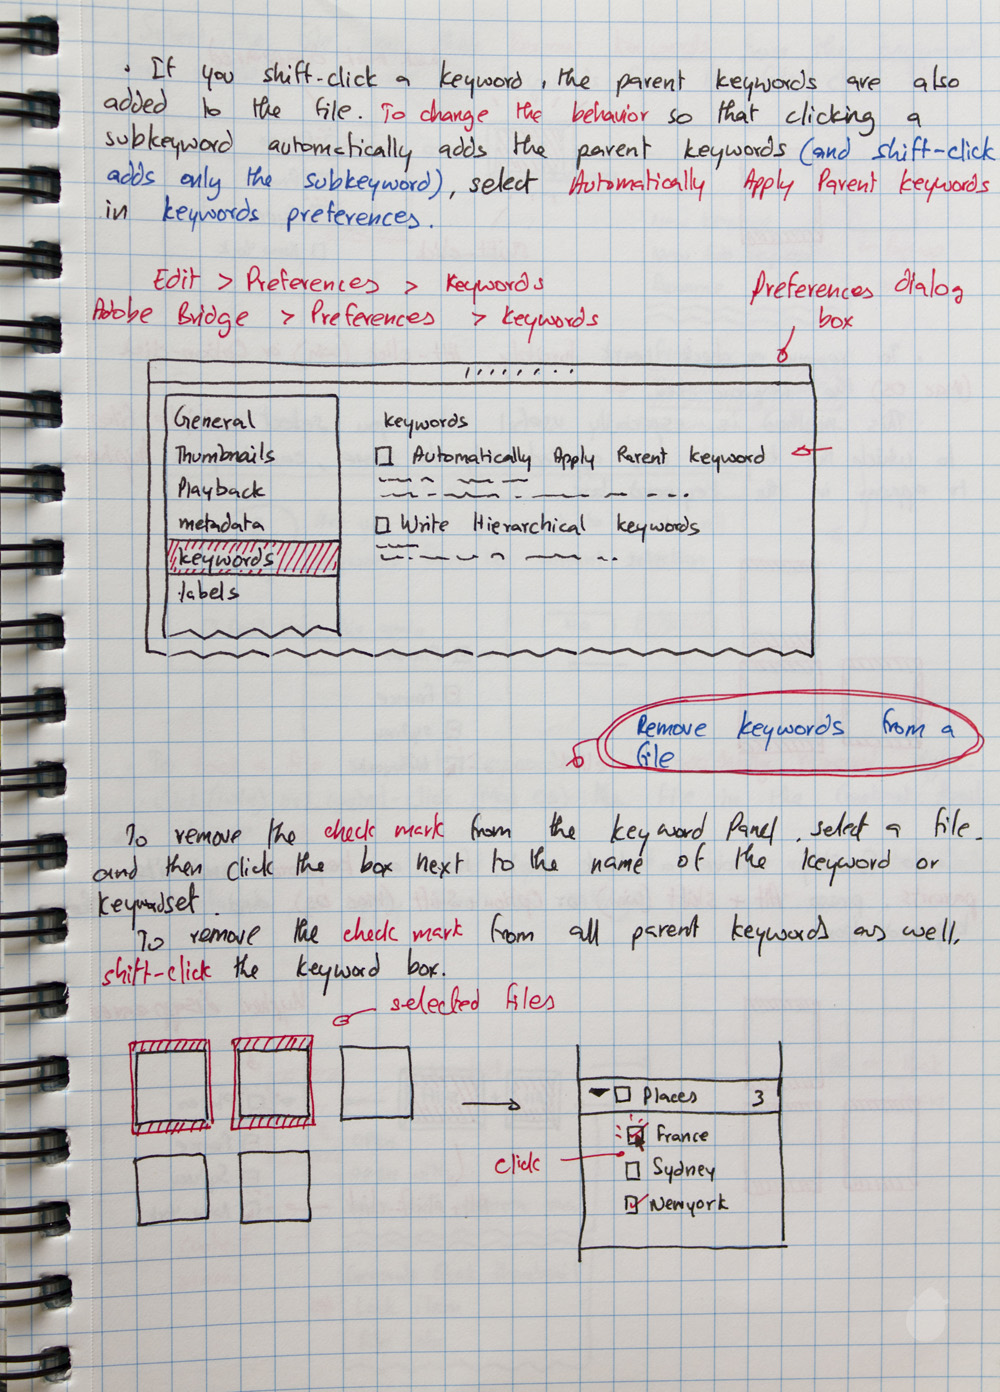 . If you shift-click a keyword, the parent keywords are also
added to the file. To change the behavior so that clicking a
subkeyword automatically adds the parent keywords (and shift-click
adds only the subkeyword), select Automatically Apply Parent keywords
in keywords preferences.
Edit > Preferences > Keywords
Adobe Bridge > Preferences > Keywords
Preferences dialog
box
General
Thumbnails
Playback
metadata
keywords
labels
keywords
Automatically Apply Parent keyword
Write Hierarchical keywords
Remove keywords from a
file
To remove the check mark from the keyword Panel, select a file.
and then click the box next to the name of the keyword or
keywordset.
To remove the check mark from all parent keywords as well,
shift-click the keyword box.
selected files
Places 3
France
click
Sydney
Newyork